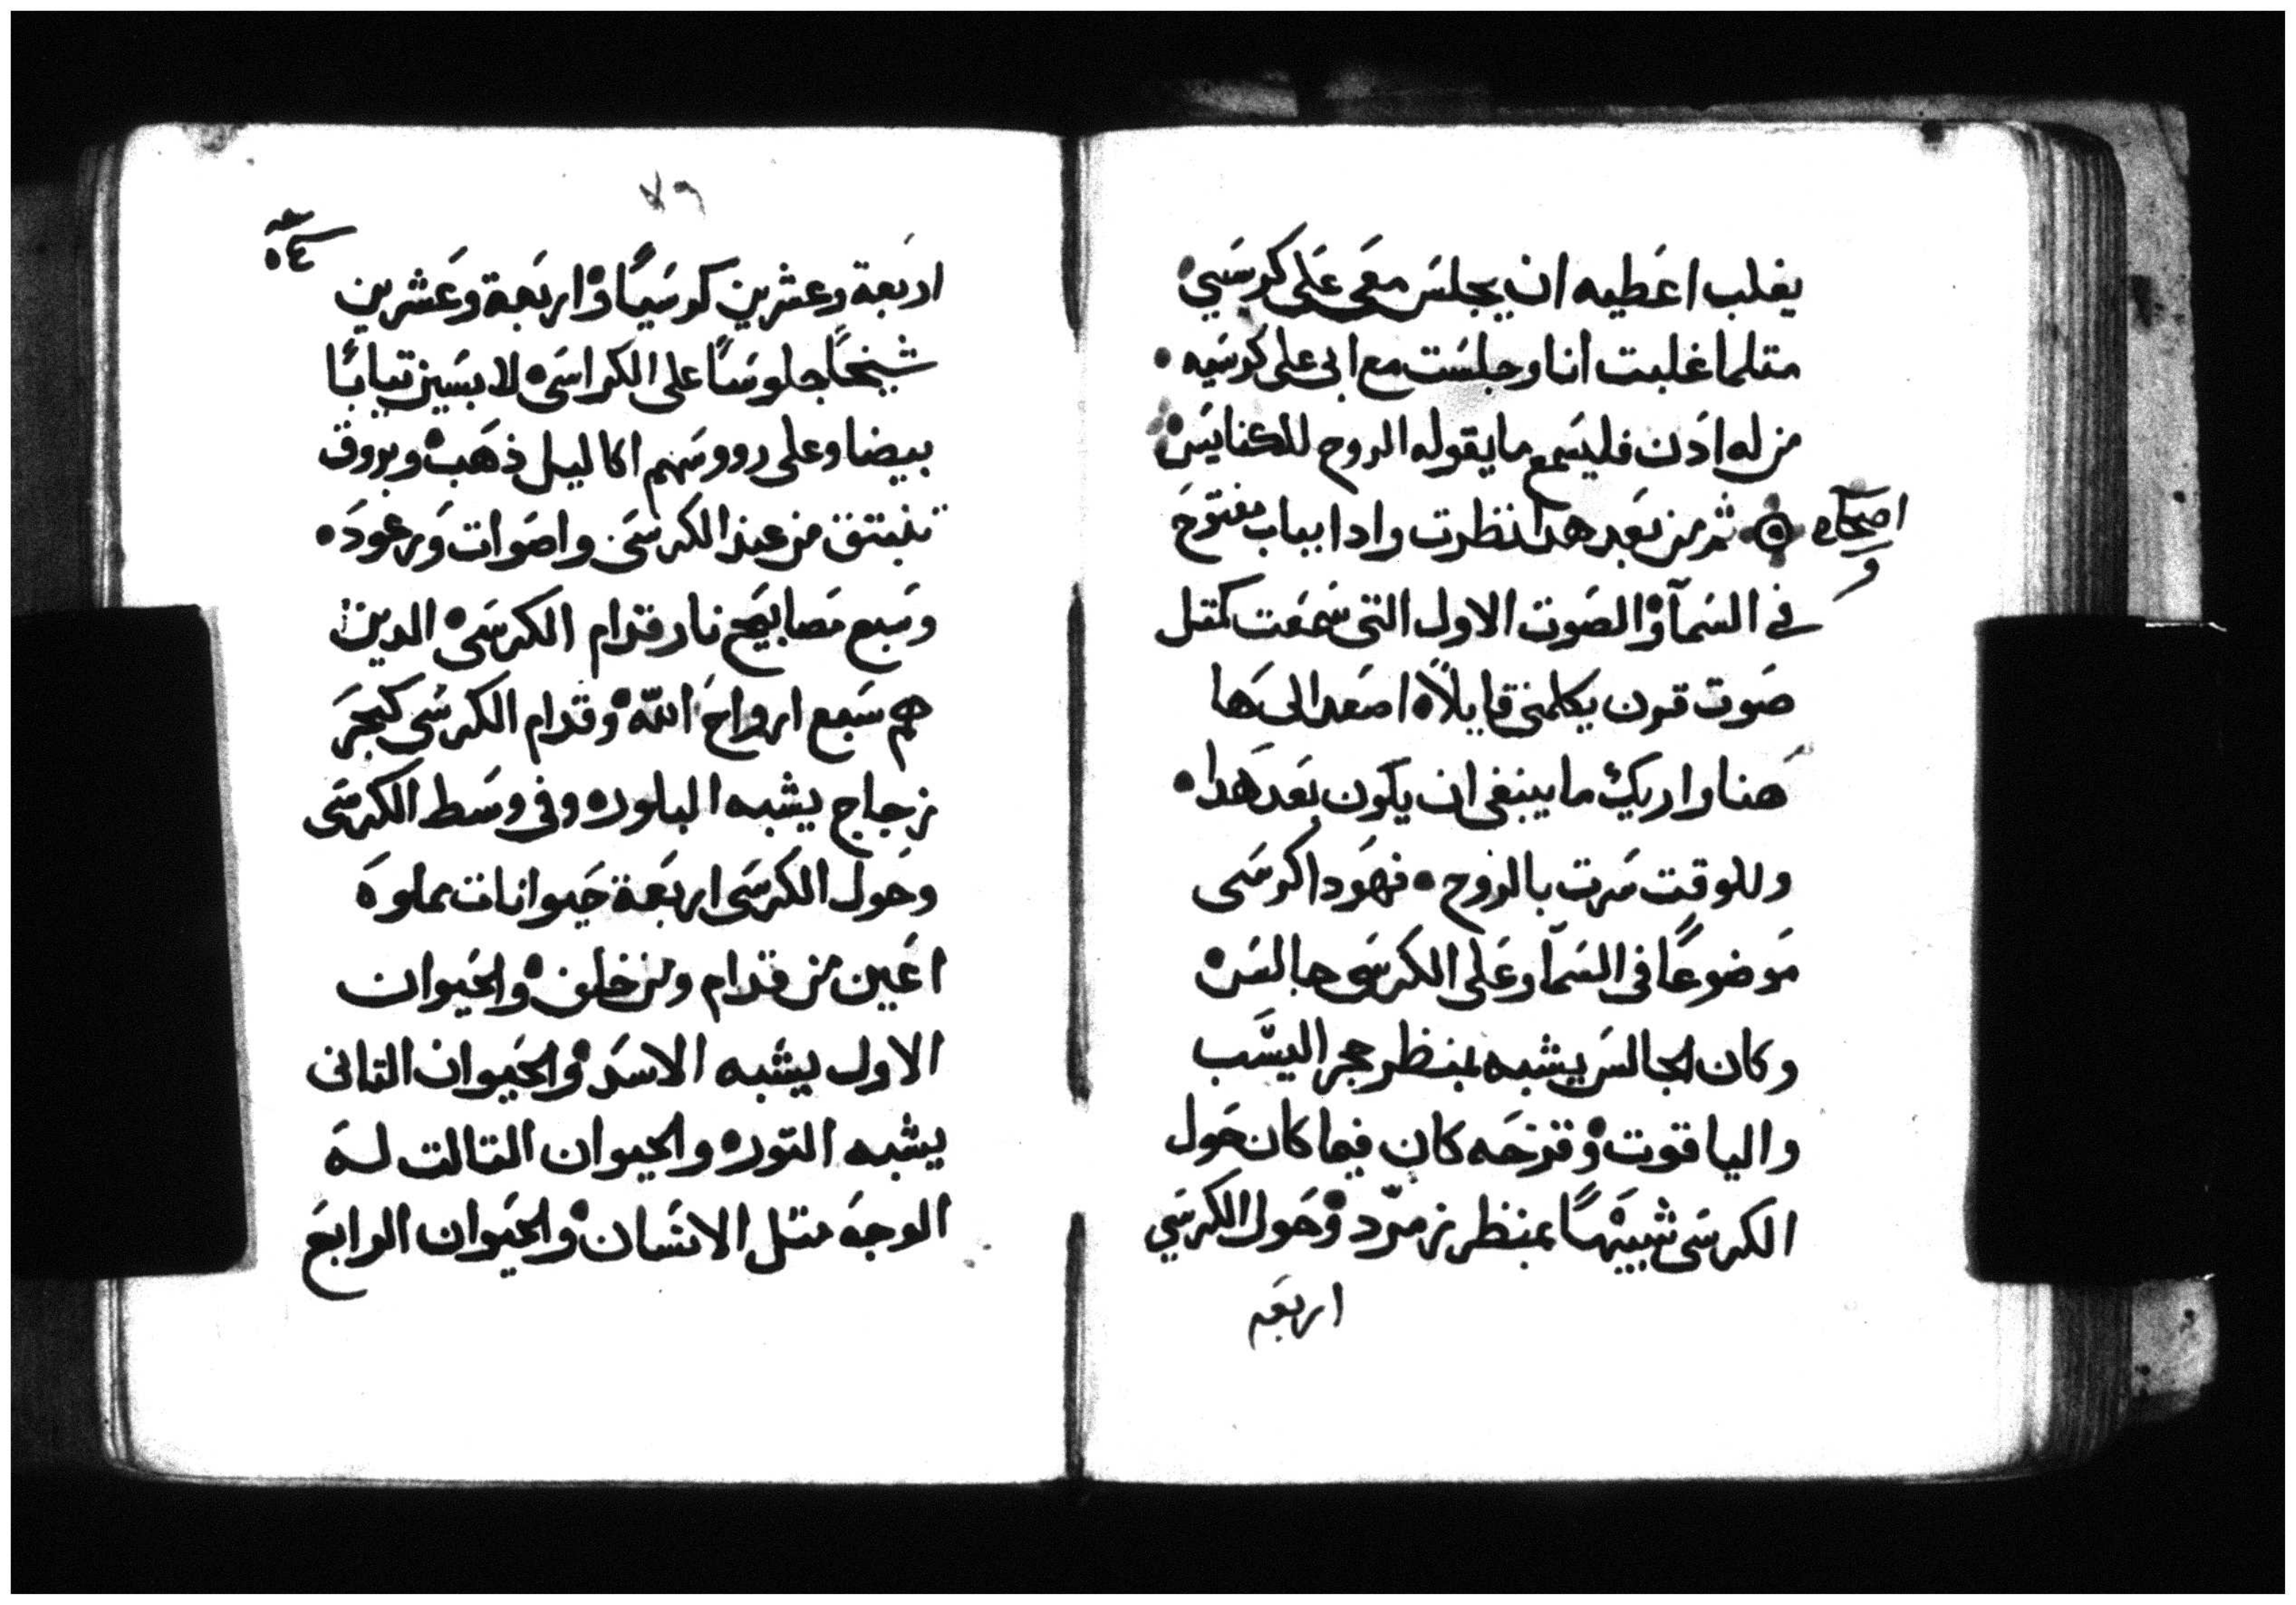 يغلب اعَطيه ان يجلسَ معَي عَلى كرسَيي
متلما غلبت انا وجلسَت مع ابى على كرسَيه •
من له ادَن فليسَمع ما يقوله الروح للكنايسَ
اصحاح
ثم من بعَد هدا نظرت وادا بباب مفتوحَ
في السَمآ والصَوت الاول التى سَمعَت كمتل
صَوت قرن يكلمنى قايلاً ه اصَعد الى هَا
هَنا واريك ما ينبغى ان يكَون بعَد هَدا •
وللوقت سَرت بالروح • فهوَدا كرسَى
مَوضوعًا فى السَمآ وعَلى الكرسَى جالسَ
وكان الجالسَ يشبه بمنظر حجر اليسَّب
والياقوت وقزحَه كان فيما كان حَول
الكرسَى شبيهًا بمنظر زمرّد وحَول الكرسَي
اربعَه
٧٩
٥٤
اربَعة وعشرين كرسَيًا واربَعة وعَشرين
شيخًا جلوسَا على الكراسَى لابسَين تيابًا
بيضا وعلى رووسَهم اكاليل ذهَب وبروق
تنبتق من عند الكرسَى واصَوات وَرعودَ •
وسَبع مَصابيَح نار قدام الكرسَى الدين
هم سَبع ارواحَ اللّه وقدام الكرسَى كبحَر
زجاج يشبه البلور ه وفى وسَط الكرسَى
وحَول الكرسَى اربَعة حَيوانات مملوهَ
اعَين من قدام ومن خلف والحَيوان
الاول يشبه الاسَد والحَيوان التانى
يشبه التور ه والحيوان التالت لهَ
الوجهَ متل الانسَان والحَيوان الرابعَ